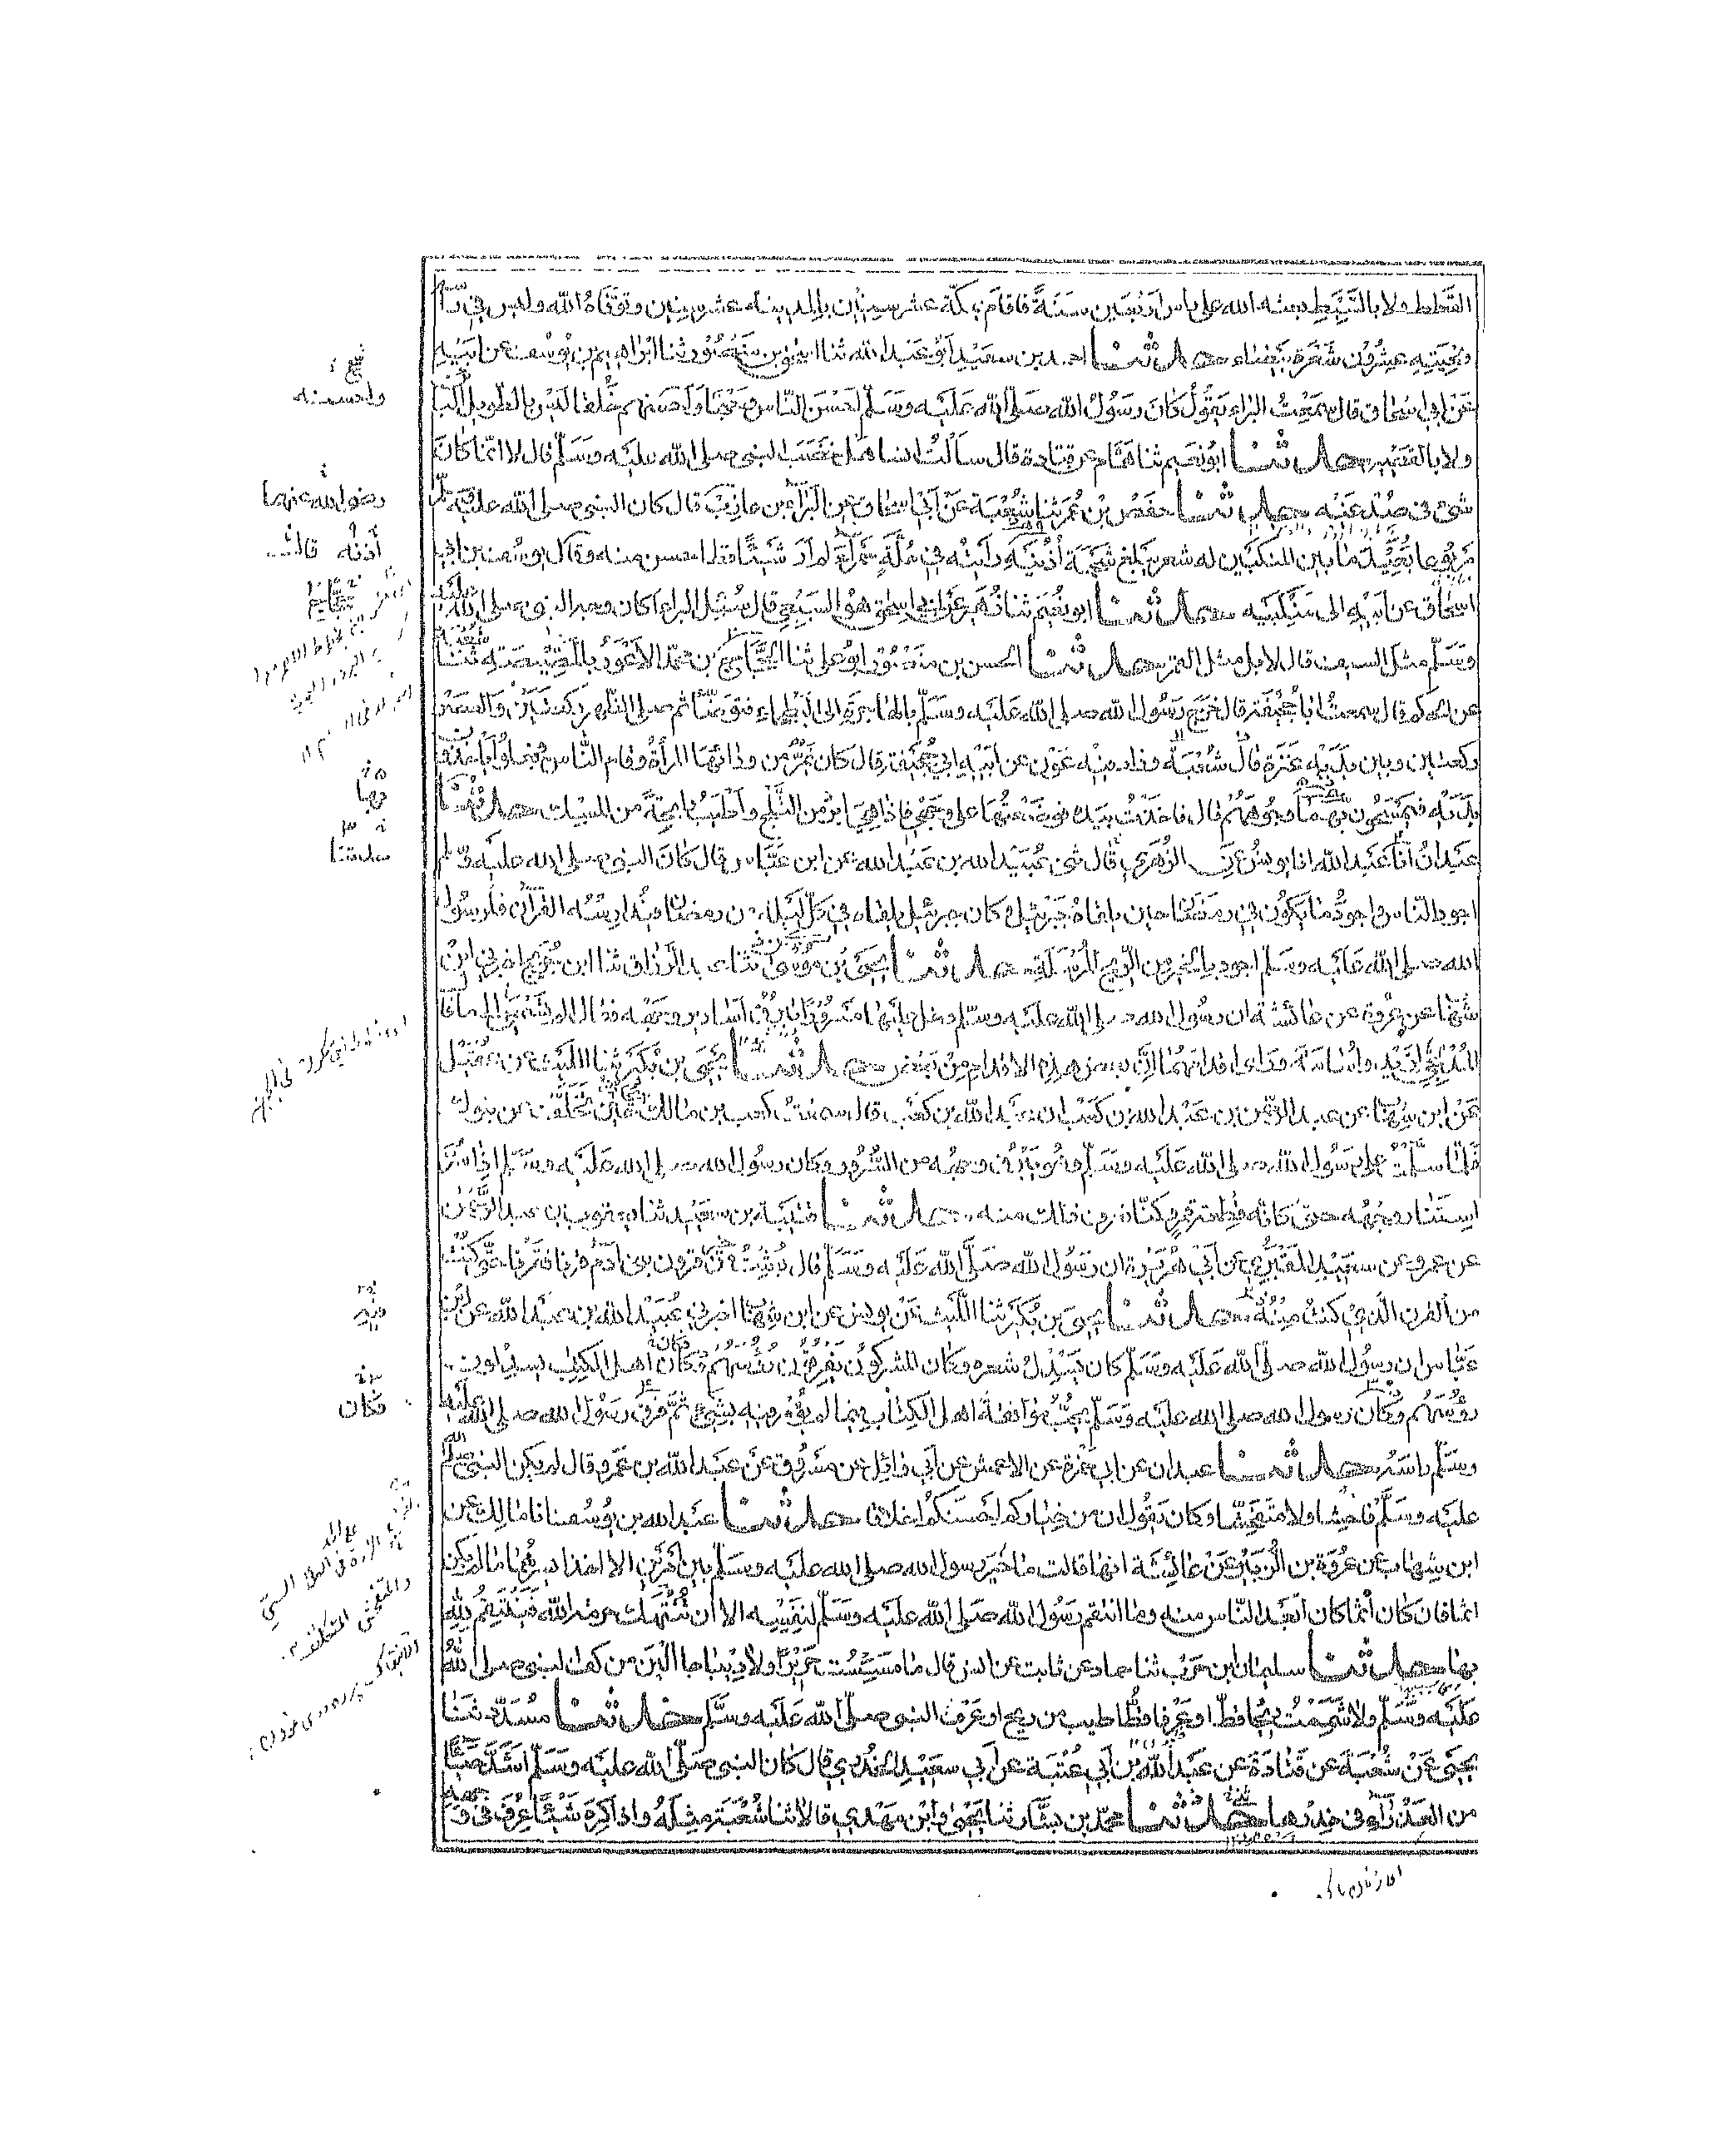 القطط ولا بالسبط بعثه الله على راس اربعين سنة فاقام بمكة عشر سنين بالمدينة عشر سنين وتوفاه الله وليس في راسه
ولحيته عشرون شعرة بيضاء حدثنا احمد بن سعيد ابو عبد الله ثنا اسحق بن منصور ثنا ابراهيم بن يوسف عن ابيه
عن ابي اسحاق قال سمعت البراء يقول كان رسول الله صلى الله عليه وسلم احسن الناس وجها واحسنهم خلقا ليس بالطويل البائن
ولا بالقصير حدثنا ابو نعيم ثنا همام عن قتادة قال سالت انسا هل خضب النبي صلى الله عليه وسلم قال لا انما كان
شئ في صدغيه حدثنا حفص بن عمر ثنا شعبة عن ابي اسحاق عن البراء بن عازب قال كان النبي صلى الله عليه وسلم
مربوعا بعيد ما بين المنكبين له شعر يبلغ شحمة اذنيه رايته في حلة حمراء لم ار شيئا قط احسن منه وقال يوسف بن ابي
اسحاق عن ابيه الى منكبيه حدثنا ابو نعيم ثنا زهير عن ابي اسحق هو السبيعي قال سئل البراء اكان وجه النبي صلى الله عليه
وسلم مثل السيف قال لا بل مثل القمر حدثنا الحسن بن منصور ابو علي ثنا الحجاج بن محمد الاعور بالمصيصة ثنا شعبة
عن الحكم قال سمعت ابا جحيفة قال خرج رسول الله صلى الله عليه وسلم بالهاجرة الى البطحاء فتوضأ ثم صلى الظهر ركعتين والعصر
ركعتين وبين يديه عنزة قال شعبة وزاد فيه عون عن ابيه ابي جحيفة قال كان تمر من ورائها المرأة وقام الناس فجعلوا ياخذون
يديه فيمسحون بهما وجوههم قال فاخذت بيده فوضعتها على وجهي فاذا هي ابرد من الثلج واطيب رايحة من المسك حدثنا
عبدان انا عبد الله انا يونس عن الزهري قال ثني عبيد الله بن عبد الله عن ابن عباس قال كان النبي صلى الله عليه وسلم
اجود الناس واجود ما يكون في رمضان حين يلقاه جبرئيل وكان جبرئيل يلقاه في كل ليلة من رمضان فيدارسه القرآن فلرسول
الله صلى الله عليه وسلم اجود بالخير من الريح المرسلة حدثنا يحيى بن موسى ثنا عبد الرزاق ثنا ابن جريج اخبرني ابن
شهاب عن عروة عن عائشة ان رسول الله صلى الله عليه وسلم دخل عليها مسرورا تبرق اسارير وجهه فقال الم تسمعي الى ما قال
المدلجي لزيد واسامة وراى اقدامهما ان بعض هذه الاقدام من بعض حدثنا يحيى بن بكير ثنا الليث عن عقيل
عن ابن شهاب عن عبد الرحمن بن عبد الله بن كعب ان عبد الله بن كعب قال سمعت كعب بن مالك يحدث حين تخلف عن تبوك
فلما سلمت على رسول الله صلى الله عليه وسلم وهو يبرق وجهه من السرور وكان رسول الله صلى الله عليه وسلم اذا سر
استنار وجهه حتى كانه قطعة قمر وكنا نعرف ذلك منه حدثنا قتيبة بن سعيد ثنا يعقوب بن عبد الرحمن
عن عمرو عن سعيد المقبري عن ابي هريرة ان رسول الله صلى الله عليه وسلم قال بعثت من خير قرون بني ادم قرنا فقرنا حتى كنت
من القرن الذي كنت منه حدثنا يحيى بن بكير ثنا الليث عن يونس عن ابن شهاب اخبرني عبيد الله بن عبد الله عن ابن
عباس ان رسول الله صلى الله عليه وسلم كان يسدل شعره وكان المشركون يفرقون رءوسهم وكان اهل الكتاب يسدلون
رؤسهم وكان رسول الله صلى الله عليه وسلم يحب موافقة اهل الكتاب فيما لم يؤمر فيه بشئ ثم فرق رسول الله صلى الله عليه
وسلم راسه حدثنا عبدان عن ابي حمزة عن الاعمش عن ابي وائل عن مسروق عن عبد الله بن عمرو قال لم يكن النبي صلى الله
عليه وسلم فاحشا ولا متفحشا وكان يقول ان من خياركم احسنكم اخلاقا حدثنا عبد الله بن يوسف انا مالك عن
ابن شهاب عن عروة بن الزبير عن عائشة انها قالت ما خير رسول الله صلى الله عليه وسلم بين امرين الا اخذ ايسرهما ما لم يكن
اثما فان كان اثما كان ابعد الناس منه وما انتقم رسول الله صلى الله عليه وسلم لنفسه الا ان تنتهك حرمة الله فينتقم لله
بها حدثنا سليمان بن حرب ثنا حماد عن ثابت عن انس قال ما مسست حريرا ولا ديباجا الين من كف النبي صلى الله
عليه وسلم ولا شممت ريحا قط او عرفا قط اطيب من ريح او عرف النبي صلى الله عليه وسلم حدثنا مسدد ثنا
يحيى عن شعبة عن قتادة عن عبد الله بن ابي عتبة عن ابي سعيد الخدري قال كان النبي صلى الله عليه وسلم اشد حياء
من العذراء في خدرها حدثنا محمد بن بشار ثنا يحيى وابن مهدي قالا ثنا شعبة مثله واذا كره شيئا عرف في وجهه
واحسنه
رضي الله عنهما
أذنه قالت
بهما
حدثنا
فيه
فكان
والمتفحش المتكلف